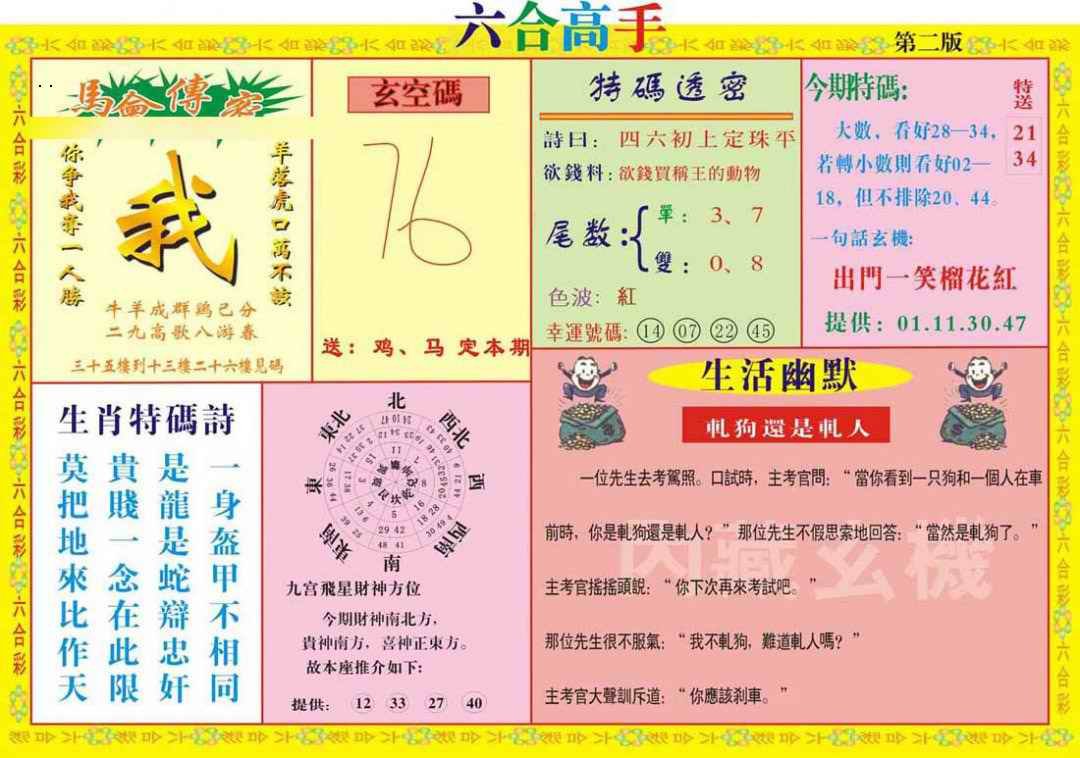 六合高手
第二版
馬會傳密
你爭我奪一人勝
我
羊落虎口萬不該
牛羊成群鸡己分
二九高歌八游春
三十五樓到十三樓二十六樓見碼
玄空碼
76
送：鸡、马 定本期
特碼透密
詩曰：四六初上定珠平
欲錢料：欲錢買稱王的動物
尾数：
單：3、7
雙：0、8
色波：紅
幸運號碼：14 07 22 45
今期特碼:
特送
21
34
大數，看好28—34，
若轉小數則看好02—
18，但不排除20、44。
一句話玄機:
出門一笑榴花紅
提供：01.11.30.47
生肖特碼詩
一身盔甲不相同
是龍是蛇辯忠奸
貴賤一念在此限
莫把地來比作天
北
東北
西北
東
西
東南
西南
南
九宫飛星財神方位
今期財神南北方，
貴神南方，喜神正東方。
故本座推介如下:
提供: 12 33 27 40
生活幽默
軋狗還是軋人
一位先生去考駕照。口試時，主考官問：“當你看到一只狗和一個人在車
前時，你是軋狗還是軋人？”那位先生不假思索地回答：“當然是軋狗了。”
主考官搖搖頭說：“你下次再來考試吧。”
那位先生很不服氣：“我不軋狗，難道軋人嗎？”
主考官大聲訓斥道：“你應該刹車。”
内藏玄機
六合彩